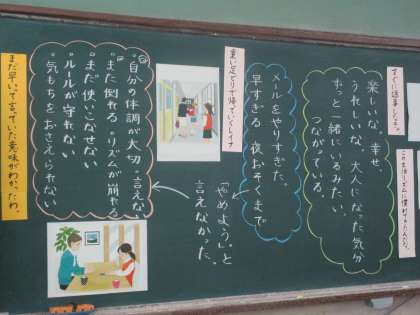 すぐに返事したら。
この生活リズムに慣れてきたんだな。
楽しいな。幸せ。
うれしいな。大人になった気分
ずっと一緒にいるみたい。
つながっている。
重い足どりで帰っていくレイナ
メールをやりすぎた。
早すぎる 夜おそくまで
「やめよう」と
言えなかった。
・自分の体調が大切・言えない
・また倒れる・リズムが崩れる
・まだ使いこなせない
・ルールが守れない
・気もちをおさえられない
まだ早いって言っていた意味がわかったわ。